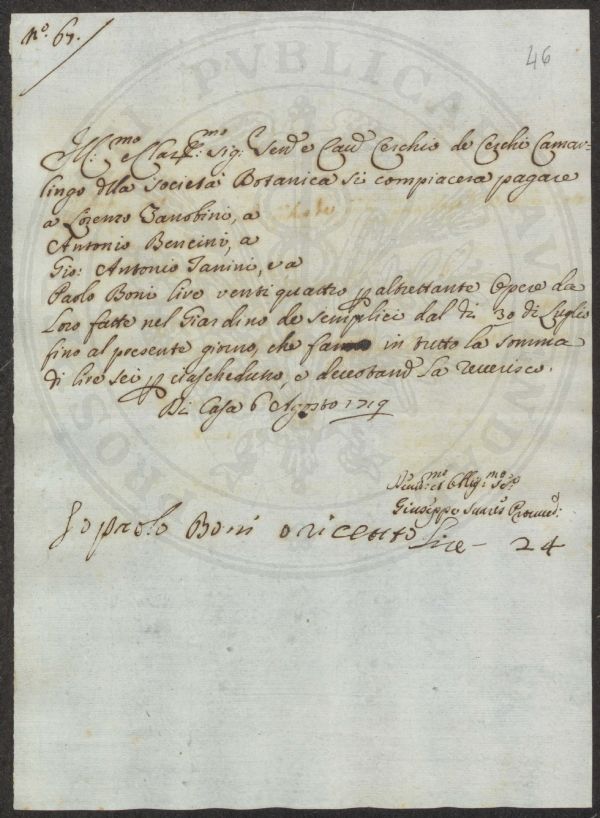 N.º 67.
46
Ill.mo e Clar.mo Sig.r Sen.e e Cav.e Cerchio de Cerchi Camar=
lingo della Società Botanica si compiacerà pagare
a Lorenzo Zanobini, a
Antonio Bencini, a
Gio: Antonio Janini, e a
Paolo Boni lire venti quattro p altrettante Opere da
Loro fatte nel Giardino de Semplici dal dì 30 di Luglio
fino al presente giorno, che fanno in tutto la somma
di lire sei p ciascheduno, e devotam.e La reverisco.
Di Casa 6 Agosto 1719
Giuseppe Proved:
Jo paolo Boni o riceuto Lire - 24
PVBLICA